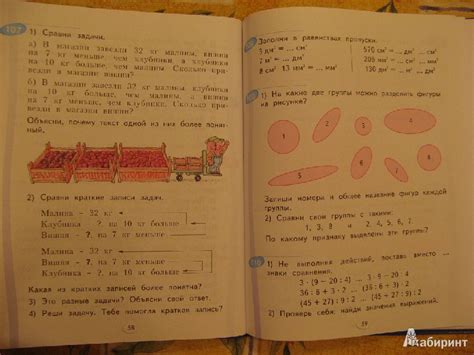 1) Сравни задачи.
а) В магазин завезли 32 кг малины, вишни
на 7 кг меньше, чем клубники, а клубники
на 10 кг больше, чем малины. Сколько при-
везли в магазин вишни?
б) В магазин завезли 32 кг малины, клубники
на 10 кг больше, чем малины, а вишни
на 7 кг меньше, чем клубники. Сколько при-
везли в магазин вишни?
Объясни, почему текст одной из них более понят-
ный.
2) Сравни краткие записи задач.
Малина - 32 кг
Клубника - ? на 10 кг больше
Вишня - ? на 7 кг меньше
Малина - 32 кг
Вишня - ? на 7 кг меньше
Клубника - ? на 10 кг больше
Какая из кратких записей более понятна?
3) Это разные задачи? Объясни свой ответ.
4) Реши задачу. Тебе помогла краткая запись?
58
Заполни в равенствах пропуски.
3 дм² = ... см²
2 м² = ... дм²
8 см² 13 мм² = ... мм²
570 см² = ... дм² ... см²
209 дм² = ... м² ... дм²
130 мм² = ... см² ... мм²
1) На какие две группы можно разделить фигуры
на рисунке?
1
2
3
4
5
6
7
8
Запиши номера и общее название фигур каждой
группы.
2) Сравни свои группы с такими:
1, 3, 8 и 2, 4, 5, 6, 7.
По какому признаку выделили эти группы?
1) Не выполняя действий, поставь вместо ...
знаки сравнения.
3 · (9 − 20 : 4) ... 3 · 9 − 20 : 4
36 : 6 + 3 · 2 ... 36 : (6 + 3) · 2
(45 + 27) : 9 : 2 ... (45 + 27) : (9 : 2)
2) Проверь себя: найди значения выражений.
59
Лабиринт